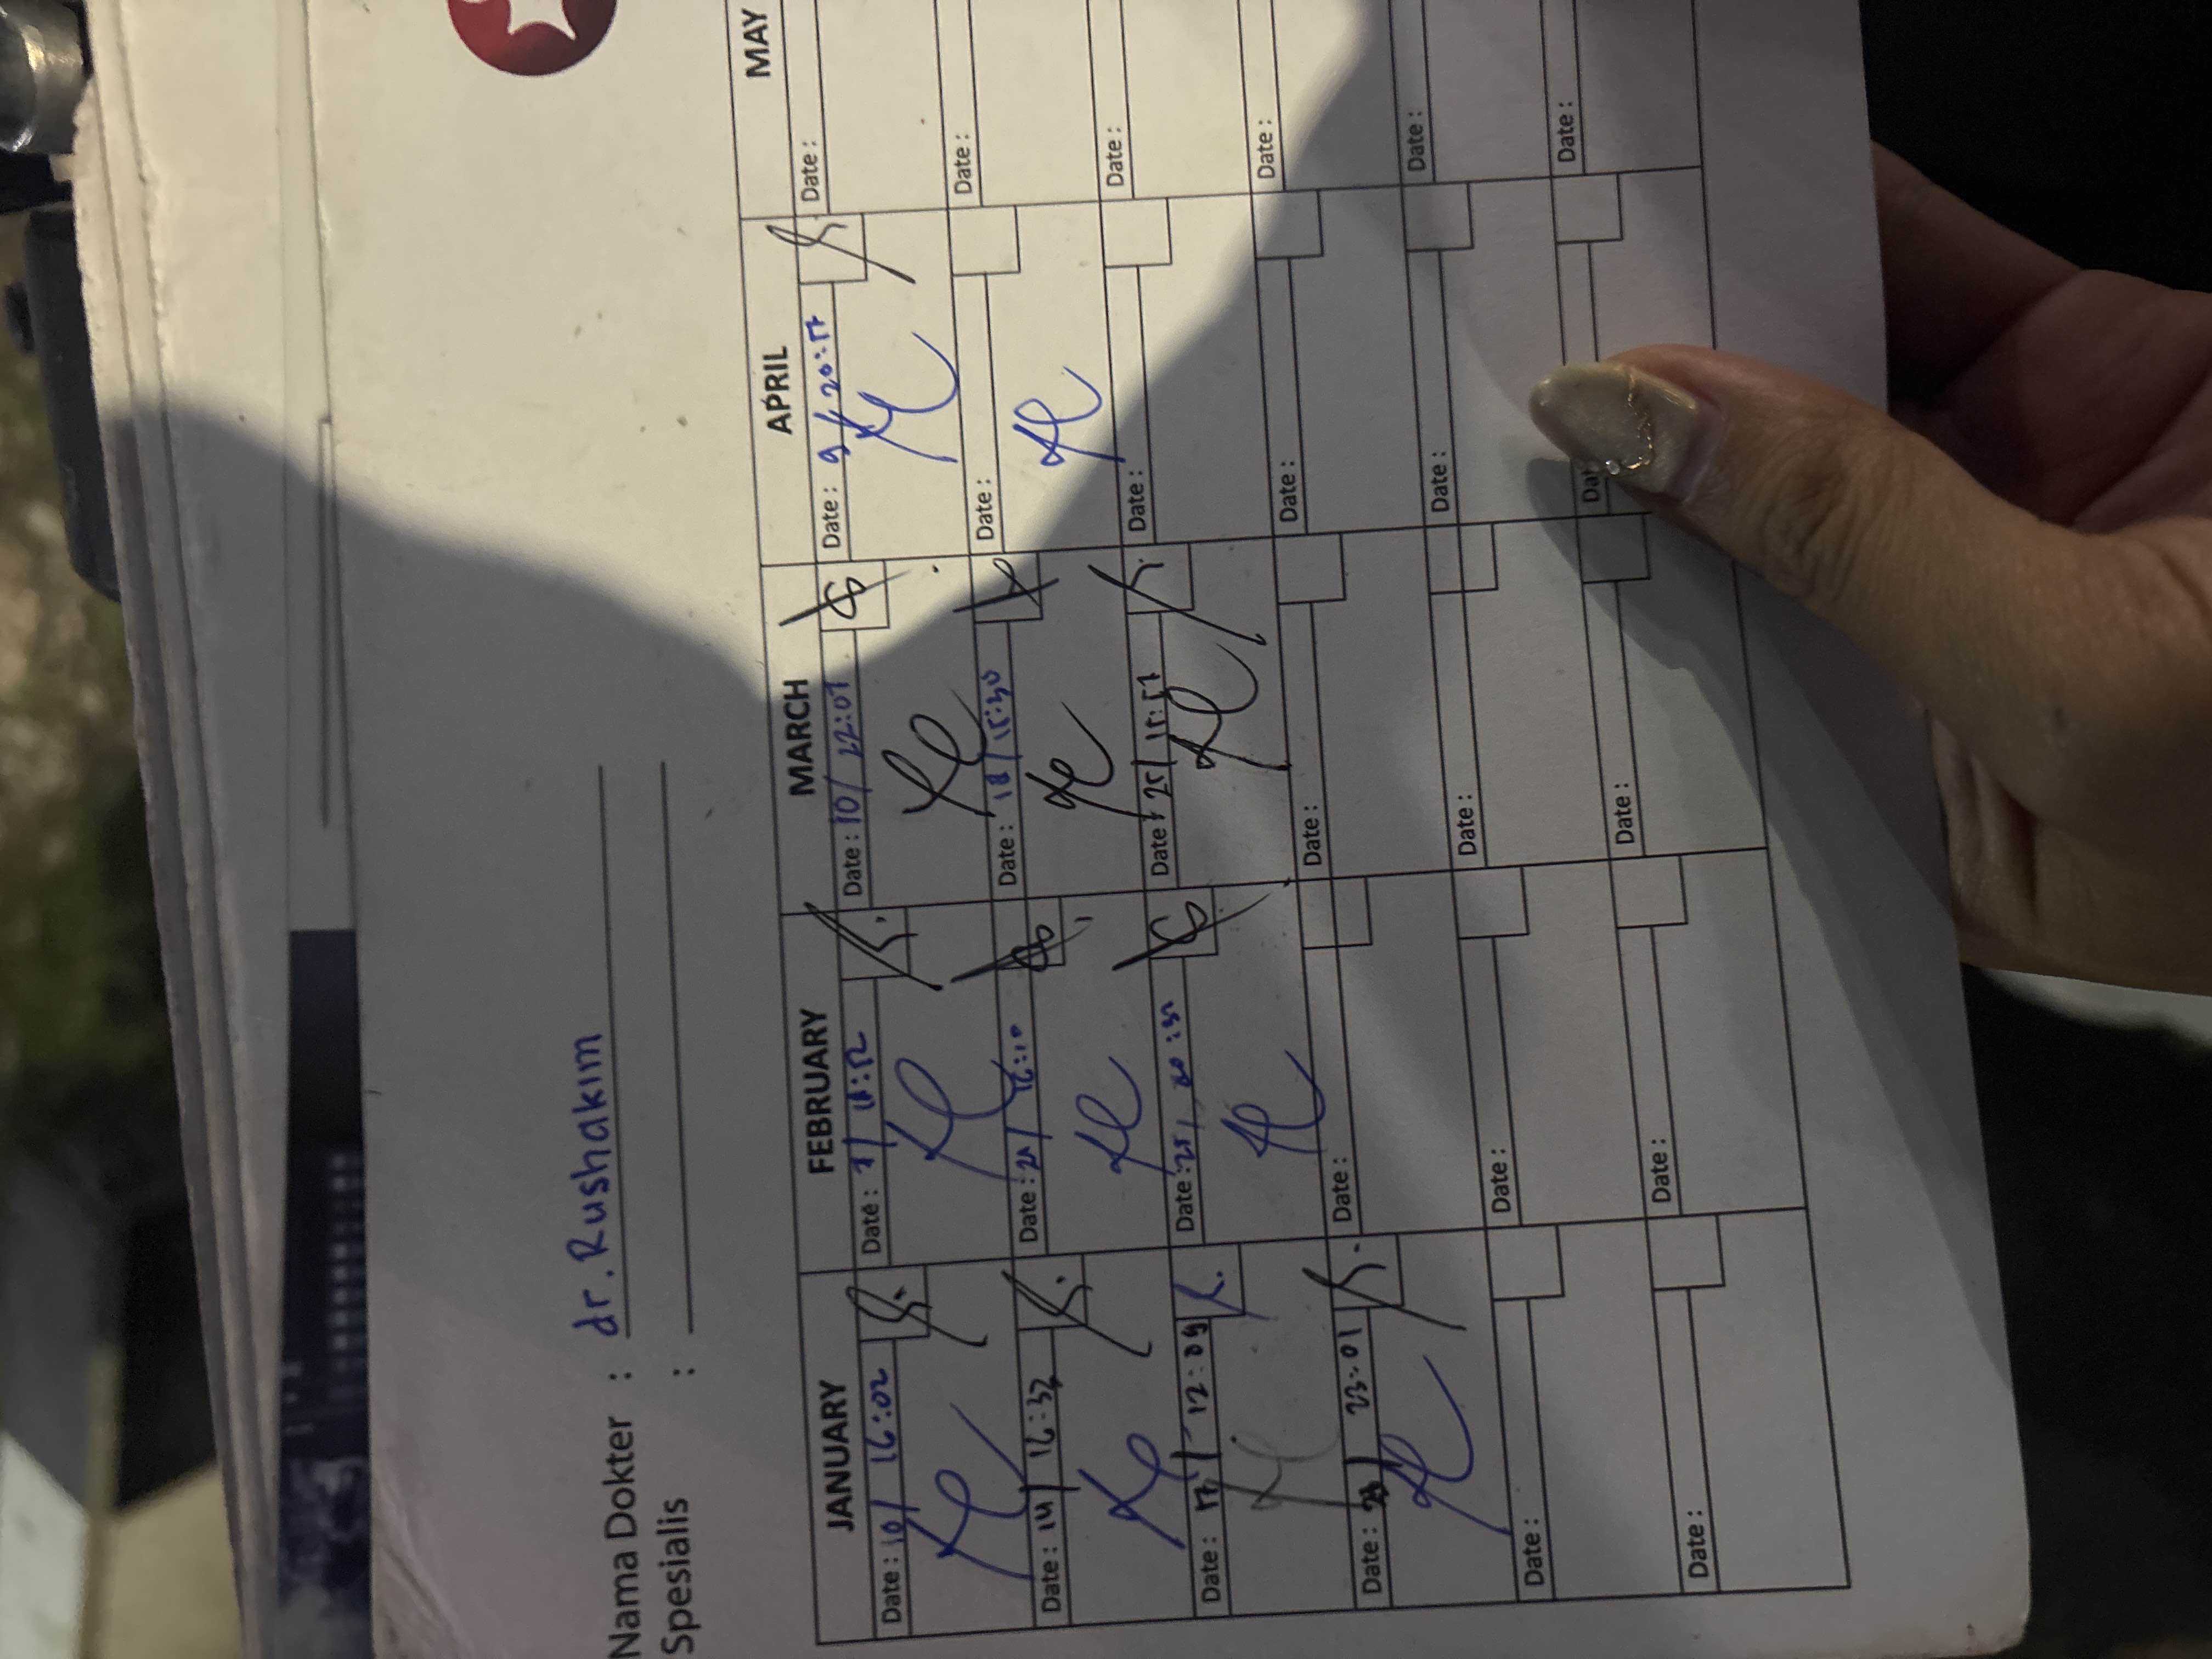 Nama Dokter : dr. Rushakim
Spesialis :
JANUARY FEBRUARY MARCH APRIL MAY
Date : 10/ 16:02 Date : Date : 10/ 22:07 Date : 9/ 20:17 Date :
Date : 14/ 16:32 Date : 21/ 16:10 Date : 18/ 15:30 Date : Date :
Date : 17/ 12:09 Date : 25/ 20:32 Date : 25/ Date : Date :
Date : 23:01 Date : Date : Date : Date :
Date : Date : Date : Date : Date :
Date : Date : Date : Dat Date :